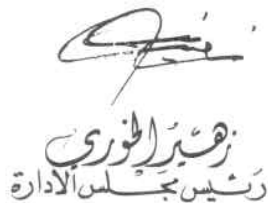 زهَيرُ الخوري
رَئيس مجَلس الادارة